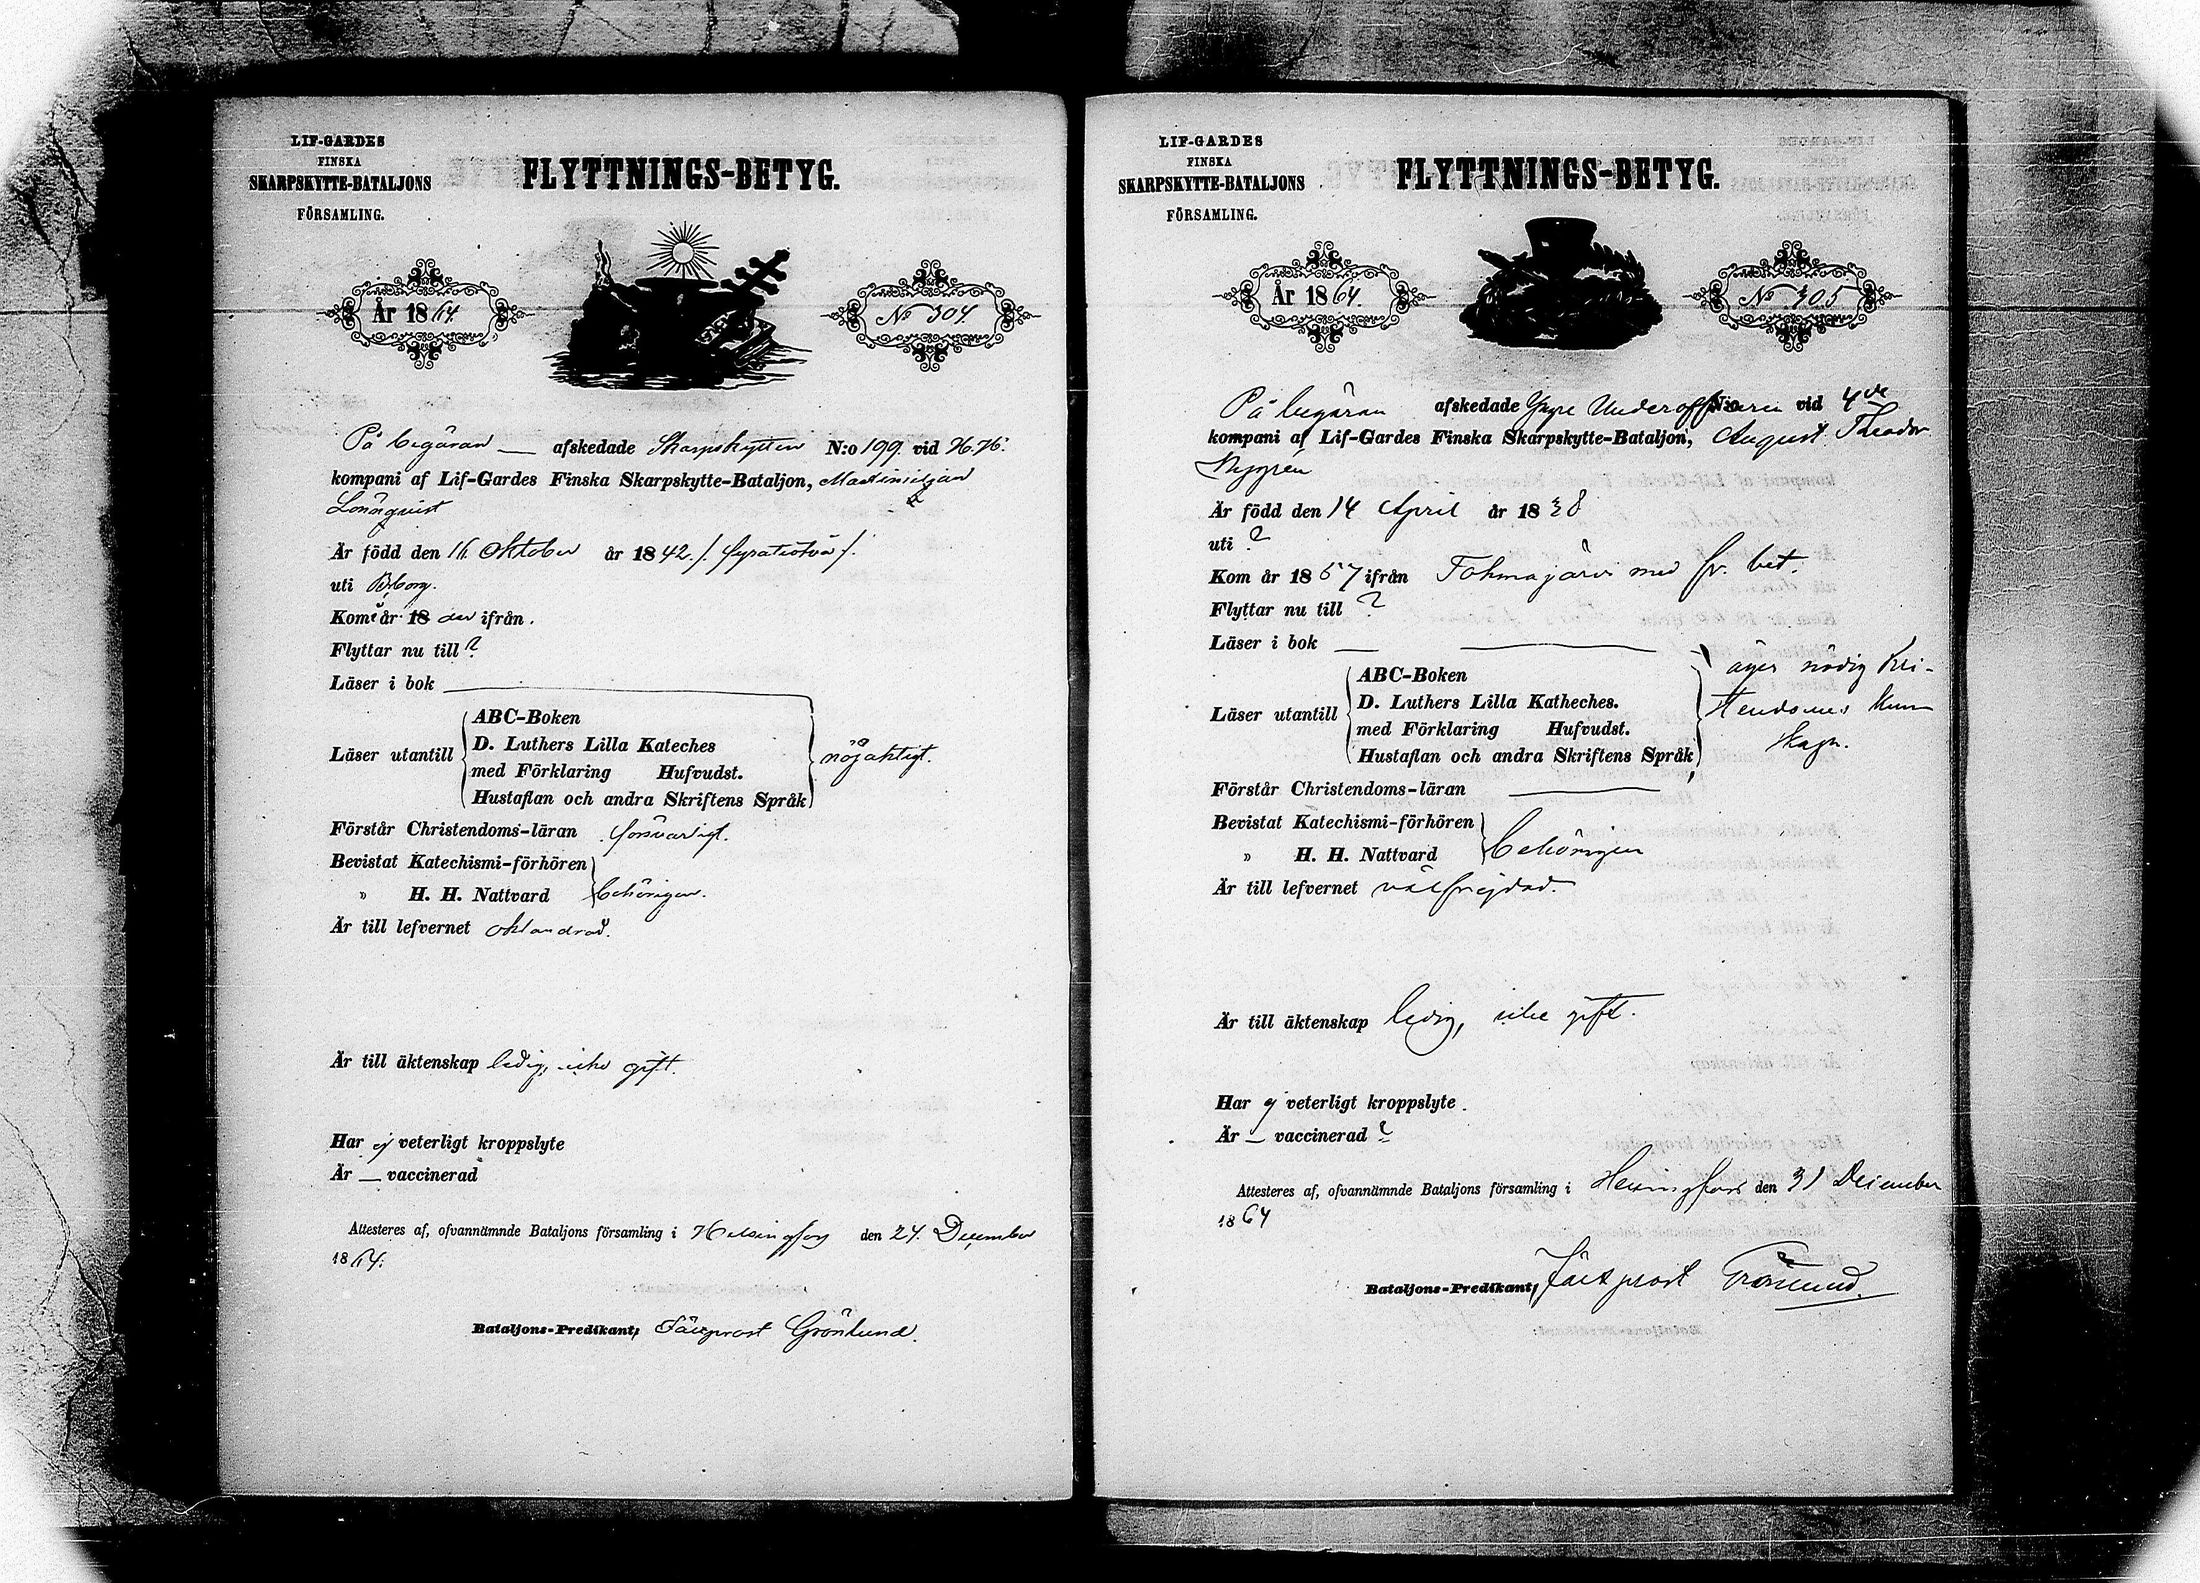 LIF-GARDES
FINSKA
SKARPSKYTTE-BATALJONS
FÖRSAMLING.
FLYTTNINGS-BETYG.
År 1864.
No 304.
På begäran — afskedade Skarpskytten N:o 199. vid
kompani af Lif-Gardes Finska Skarpskytte-Bataljon,
Lönnqvist
Är född den 16 Oktober år 1842. /. fyratiotvå /.
uti Borgå.
Kom år 18 ifrån.
Flyttar nu till ?
Läser i bok
Läser utantill
ABC-Boken
D. Luthers Lilla Kateches
med Förklaring Hufvudst.
Hustaflan och andra Skriftens Språk
nöjaktigt.
Förstår Christendoms-läran försvarligt.
Bevistat Katechismi-förhören
» H. H. Nattvard behörigen.
Är till lefvernet oklandrad.
Är till äktenskap ledig, icke gift.
Har ej veterligt kroppslyte
Är — vaccinerad
Attesteres af, ofvannämnde Bataljons församling i Helsingfors den 24. December
1864.
Bataljons-Predikant, Fältprost Grönlund.
LIF-GARDES
FINSKA
SKARPSKYTTE-BATALJONS
FÖRSAMLING.
FLYTTNINGS-BETYG.
År 1864.
No 305
På begäran afskedade Yngre Underofficeren vid 4de
kompani af Lif-Gardes Finska Skarpskytte-Bataljon, August Theodor
Nygrén
Är född den 14 April år 1838
uti ?
Kom år 1857 ifrån Tohmajärvi med fr. bet.
Flyttar nu till ?
Läser i bok —
Läser utantill
ABC-Boken
D. Luthers Lilla Katheches.
med Förklaring Hufvudst.
Hustaflan och andra Skriftens Språk
äger nödig Kri-
stendoms kun-
skap.
Förstår Christendoms-läran —
Bevistat Katechismi-förhören
» H. H. Nattvard behörigen
Är till lefvernet välfrejdad.
Är till äktenskap ledig, icke gift.
Har ej veterligt kroppslyte.
Är — vaccinerad ?
Attesteres af, ofvannämnde Bataljons församling i Helsingfors den 31 December
1864
Bataljons-Predikant, Fältprost Grönlund.